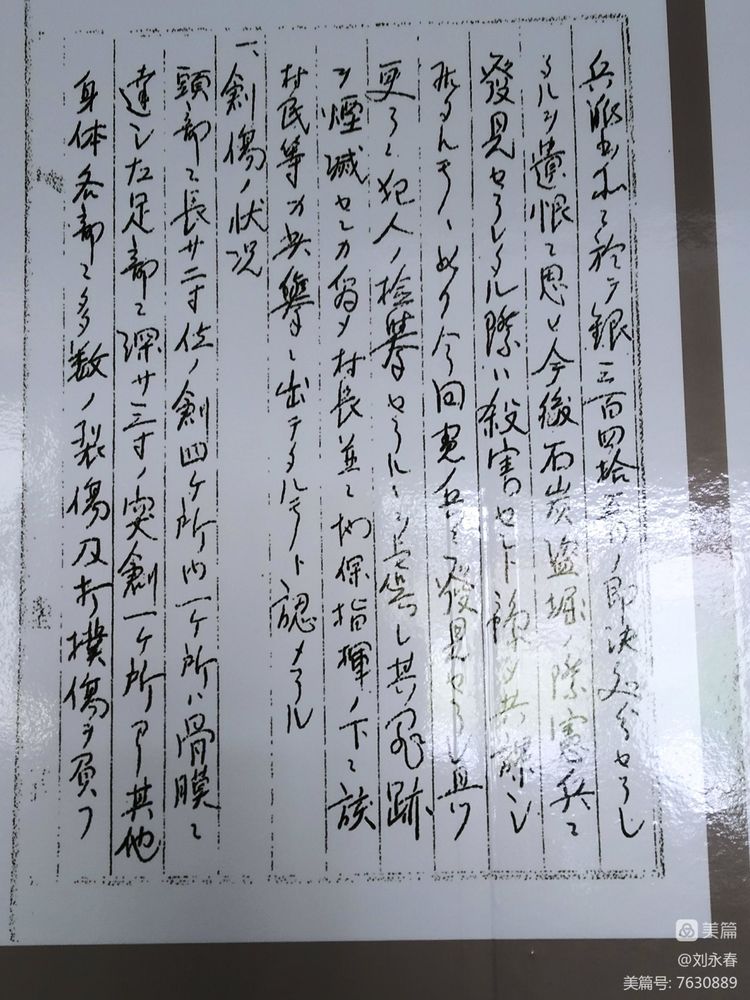 兵派出所ニ於テ銀三百四拾五円ノ即決処分セラレ
タルヲ遺恨ニ思ヒ今後石炭盗堀ノ際憲兵ニ
発見セラレタル際ハ殺害セント予メ共謀シ
居タルモノノ如ク今回憲兵ニ発見セラレ且ツ
更ラニ犯人ノ検挙セラルルヲ恐レ其罪跡
ヲ煙滅センカ為メ村長並ニ地保指揮ノ下ニ該
村民等カ共挙ニ出テタルモノト認メラル
一、創傷ノ状況
頭部ニ長サ二寸位ノ創四ケ所内一ケ所ハ骨膜ニ
達シ左足部ニ深サ三寸ノ突創一ケ所アリ其他
身体各部ニ多数ノ裂傷及打撲傷ヲ負フ
美篇
@刘永春
美篇号: 7630889